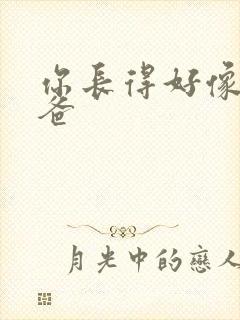 你長得好像
爸
月光中的戀人